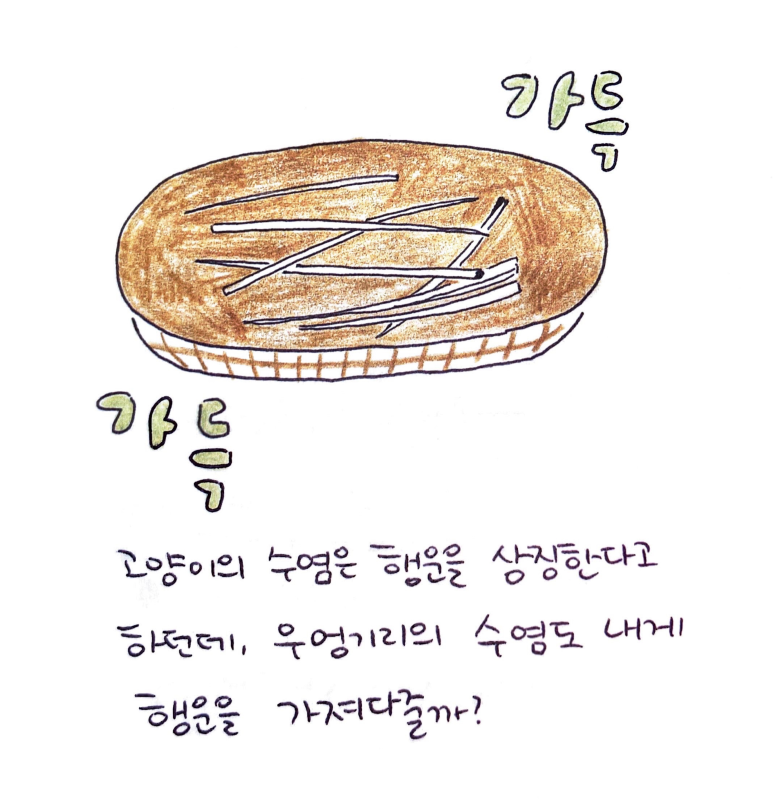 가득
가득
고양이의 수염은 행운을 상징한다고
하던데, 우엉기리의 수염도 내게
행운을 가져다줄까?